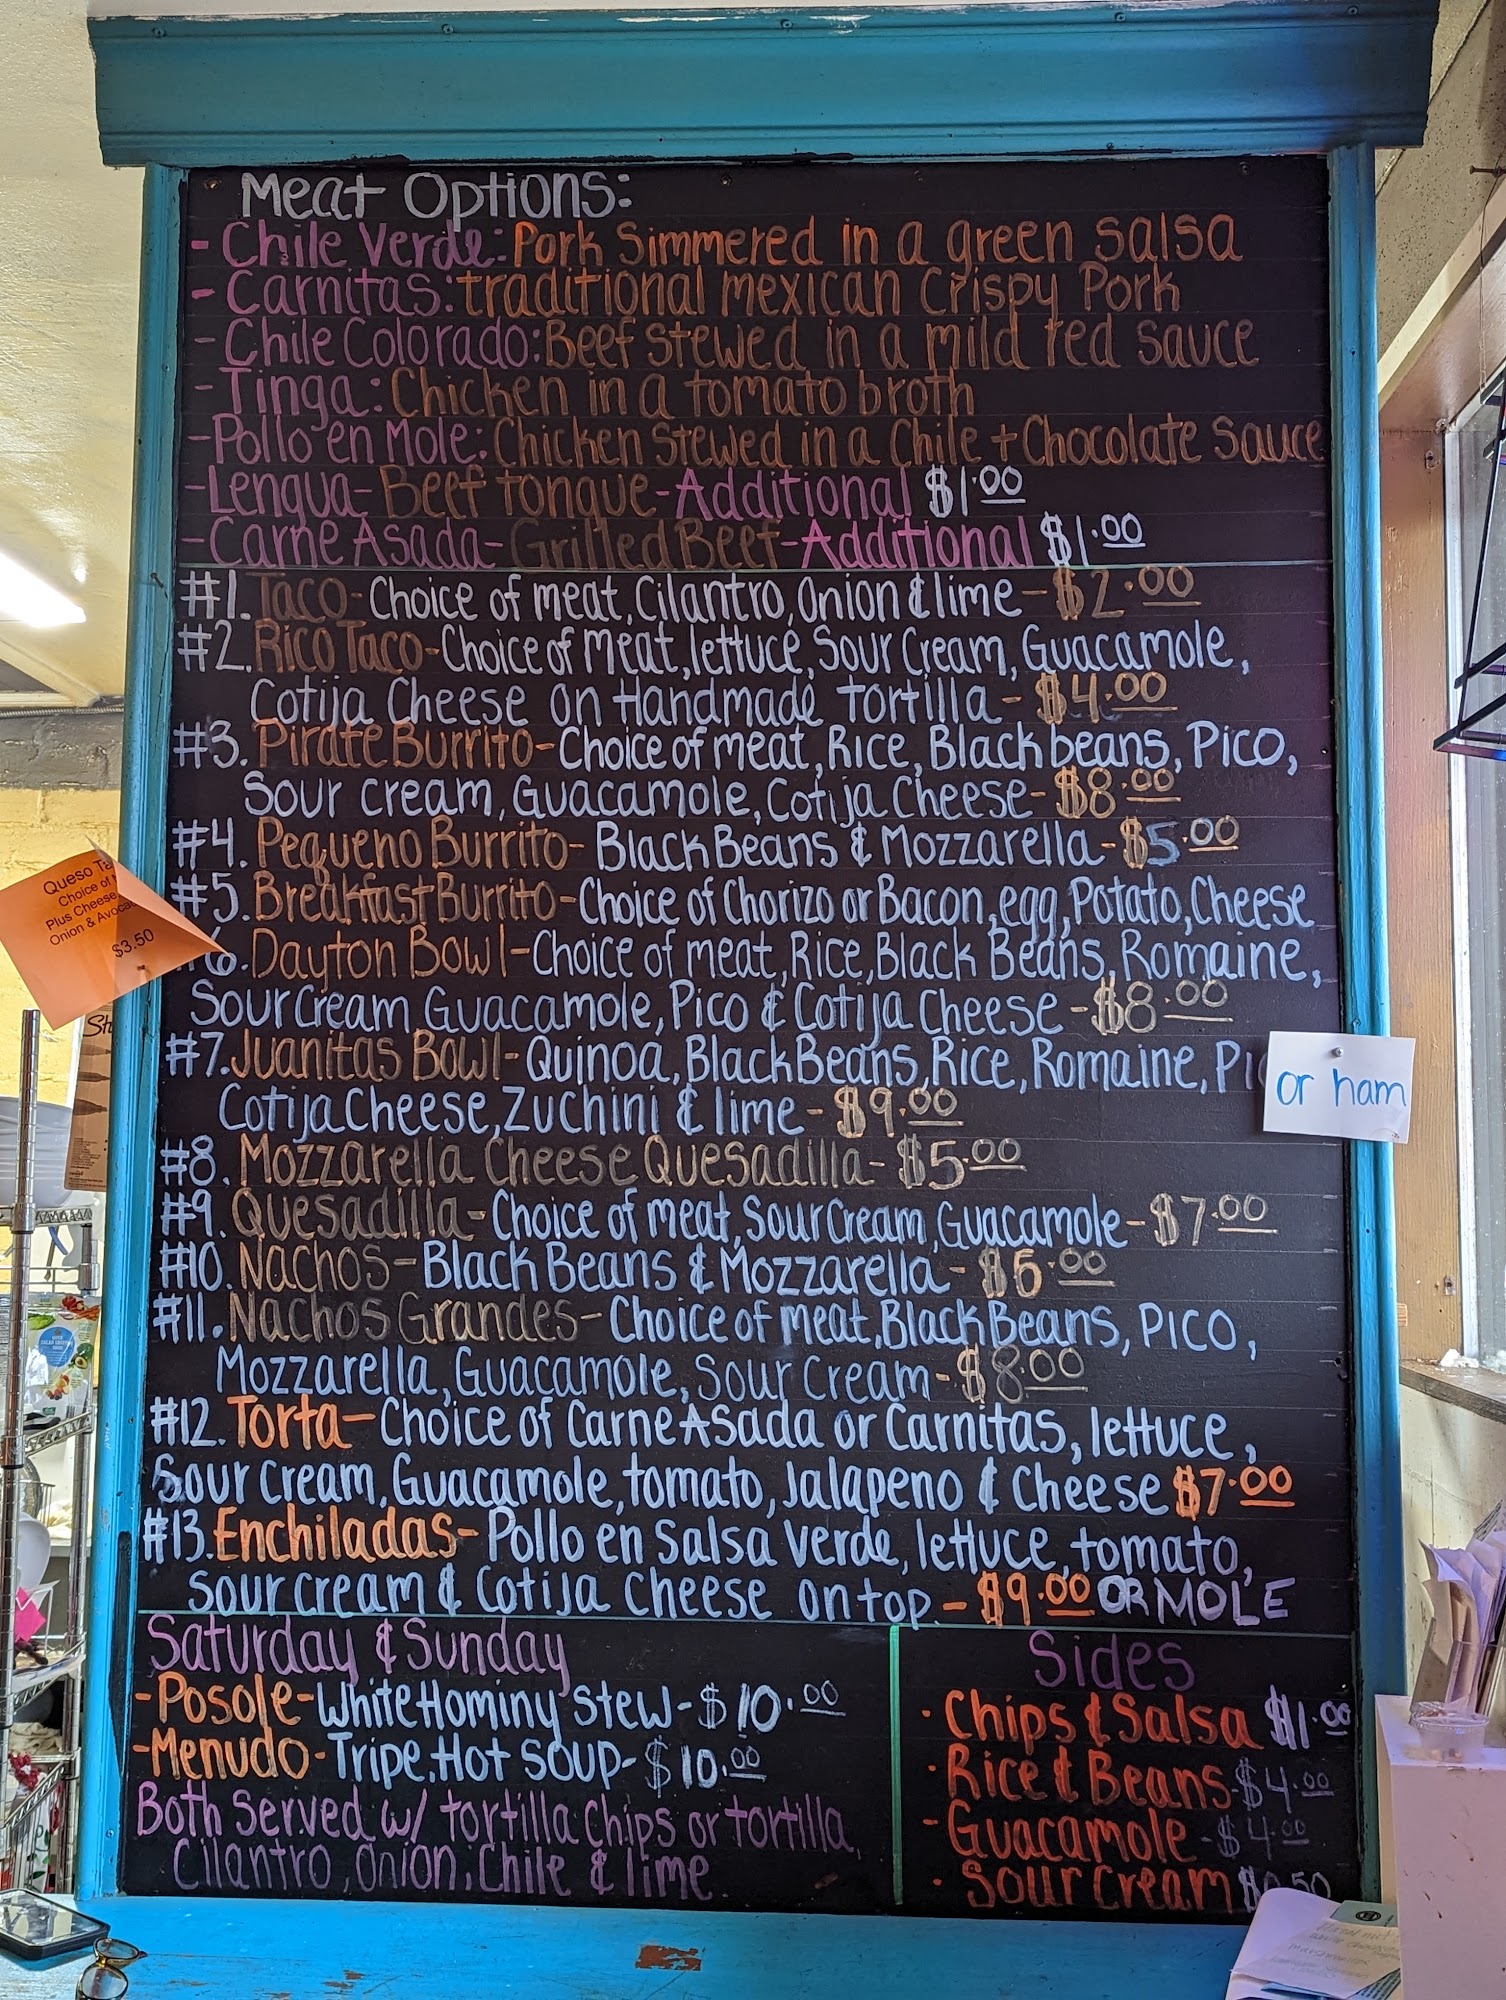 Meat Options:
- Chile Verde: Pork Simmered in a green salsa
- Carnitas. traditional mexican Crispy Pork
- Chile Colorado: Beef stewed in a mild red sauce
- Tinga: Chicken in a tomato broth
- Pollo en Mole: Chicken Stewed in a Chile + Chocolate Sauce
- Lengua - Beef tongue - Additional $1.00
- Carne Asada - Grilled Beef - Additional $1.00
#1. Taco - Choice of meat, Cilantro, Onion & lime - $2.00
#2. Rico Taco - Choice of Meat, lettuce, Sour Cream, Guacamole,
Cotija Cheese on Handmade tortilla - $4.00
#3. Pirate Burrito - Choice of meat, Rice, Black beans, Pico,
Sour cream, Guacamole, Cotija Cheese - $8.00
#4. Pequeno Burrito - Black Beans & Mozzarella - $5.00
#5. Breakfast Burrito - Choice of Chorizo or Bacon, egg, Potato, Cheese
6. Dayton Bowl - Choice of meat, Rice, Black Beans, Romaine,
Sour Cream Guacamole, Pico & Cotija Cheese - $8.00
#7. Juanitas Bowl - Quinoa, Black Beans, Rice, Romaine,
Cotija Cheese, Zuchini & lime - $9.00
#8. Mozzarella Cheese Quesadilla - $5.00
#9. Quesadilla - Choice of meat, Sour Cream, Guacamole - $7.00
#10. Nachos - Black Beans & Mozzarella - $6.00
#11. Nachos Grandes - Choice of meat, Black Beans, PICO,
Mozzarella, Guacamole, Sour Cream - $8.00
#12. Torta - Choice of Carne Asada or Carnitas, lettuce,
Sour Cream, Guacamole, tomato, Jalapeno & Cheese $7.00
#13. Enchiladas - Pollo en Salsa Verde, lettuce, tomato,
Sour cream & Cotija Cheese on top - $9.00 OR MOLE
Saturday & Sunday
- Posole - White Hominy stew - $10.00
- Menudo - Tripe. Hot soup - $10.00
Both served w/ tortilla chips or tortilla,
Cilantro, onion, Chile & lime
Sides
· Chips & Salsa $1.00
· Rice & Beans - $4.00
- Guacamole - $4.00
· Sour Cream $0.50
Queso
Choice of
Plus Cheese
Onion &
$3.50
or ham